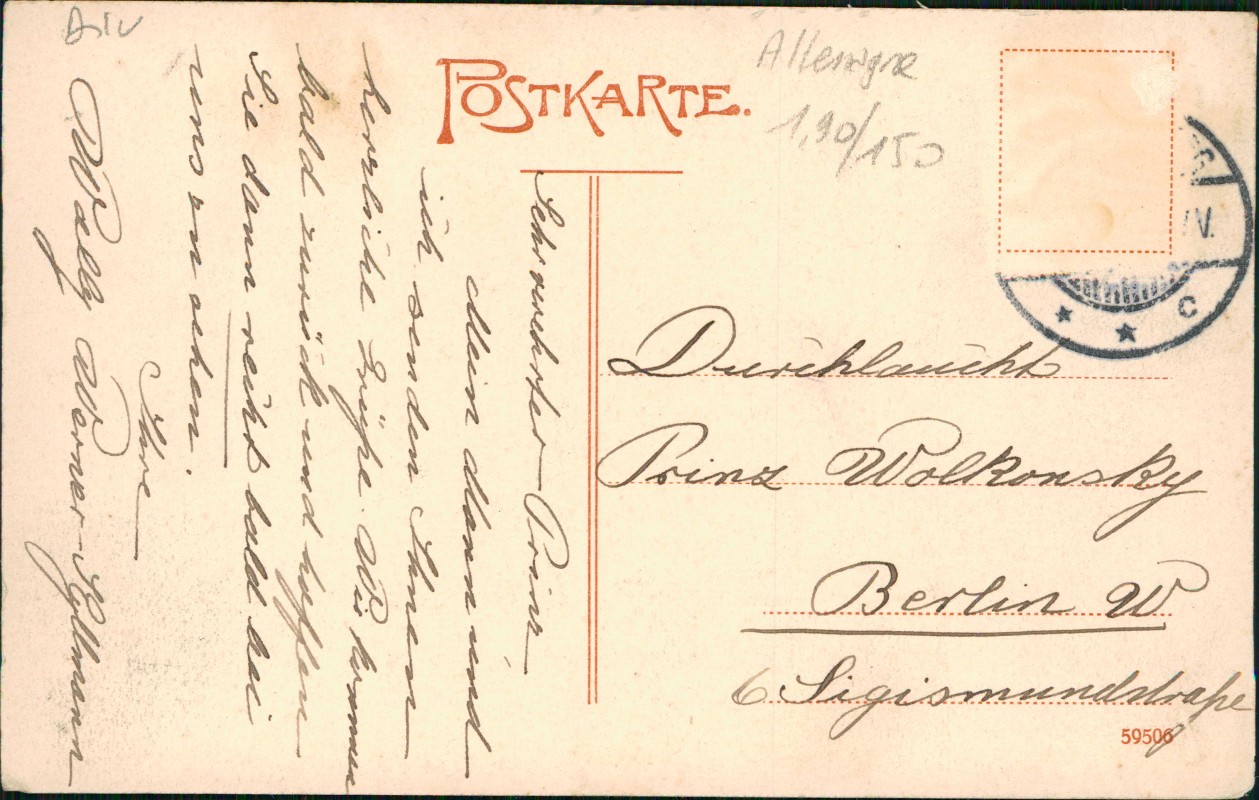 Div
POSTKARTE.
Allemagne
1,90/150
V.
C
Sehr verehrter Prinz
Mein Mann und
ich senden Ihnen
herzliche Grüße. Wir kommen
bald zurück und hoffen
Sie dann recht bald bei
uns zu sehen.
Ihre
Welly Werner-Syllmann
Durchlaucht
Prinz Wolkonsky
Berlin W
6 Sigismundstraße
59506